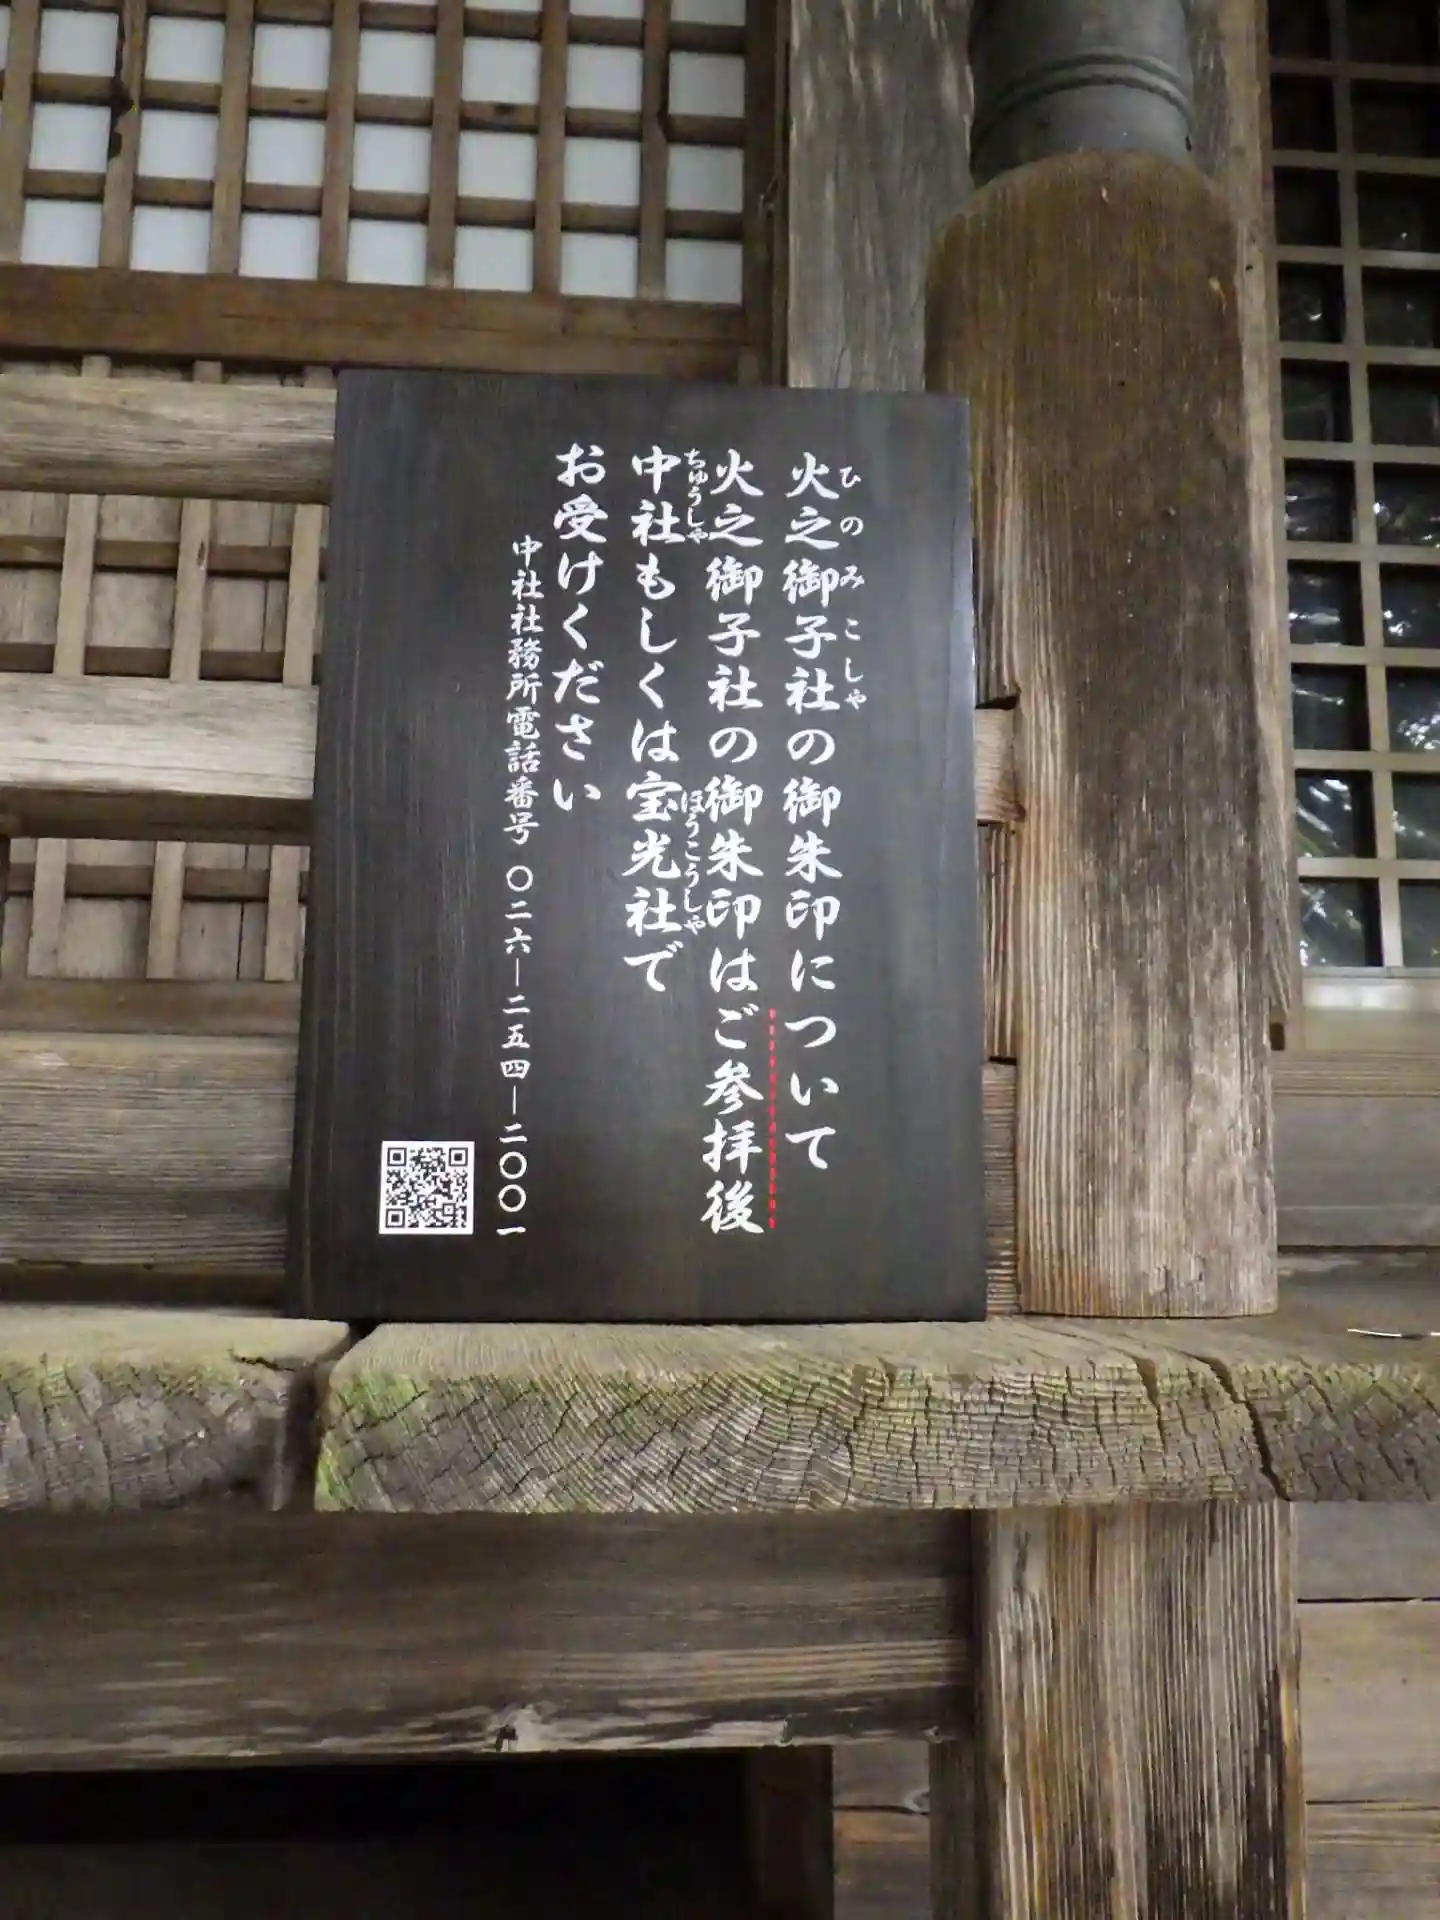 火之御子社の御朱印について
ひのみこしゃ
火之御子社の御朱印はご参拝後
中社もしくは宝光社で
ちゅうしゃ
ほうこうしゃ
お受けください
中社社務所電話番号 〇二六―二五四―二〇〇一